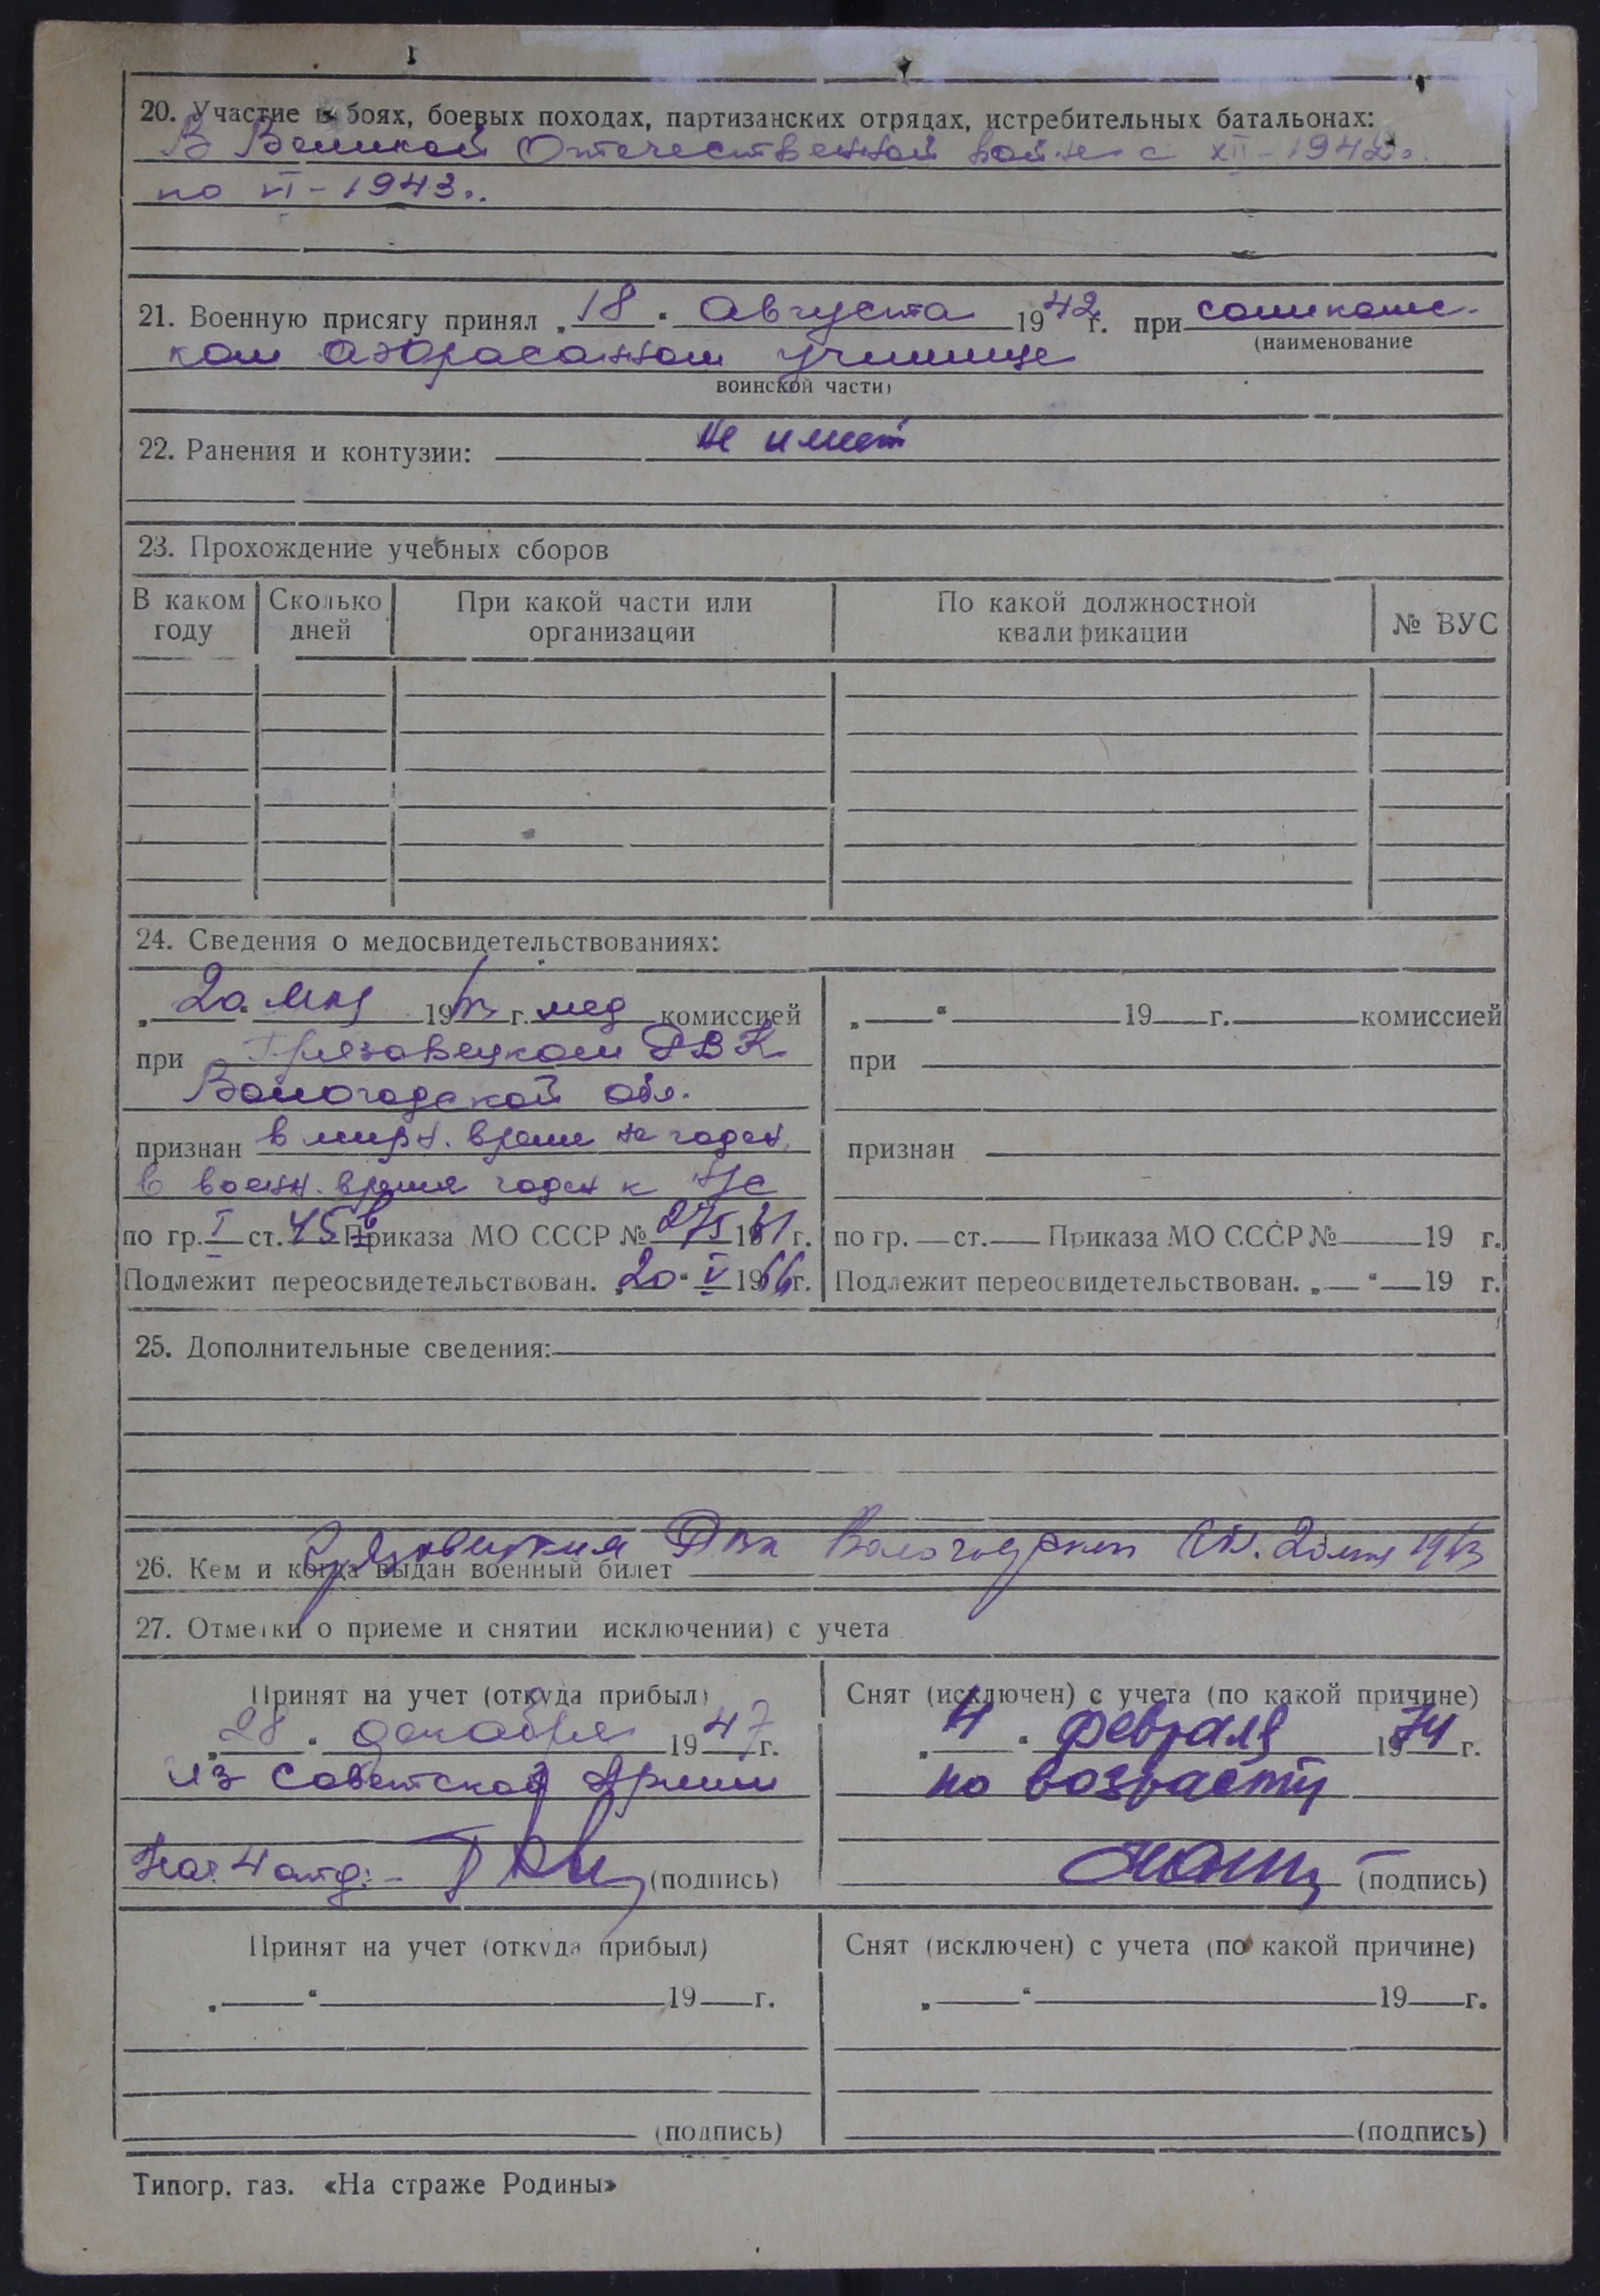 20. Участие в боях, боевых походах, партизанских отрядах, истребительных батальонах:
В Великой Отечественной войне с XII-1942г.
по VI-1943г.
21. Военную присягу принял „18“ августа 1942г. при соликамс-
(наименование
ком училище
воинской части)
22. Ранения и контузии: Не имеет
23. Прохождение учебных сборов
В каком году Сколько дней При какой части или организации По какой должностной квалификации № ВУС
24. Сведения о медосвидетельствованиях:
„20“ мая 1963 г. мед комиссией
при Грязовецком РВК
Вологодской обл.
признан в мирн. время не годен,
в воен. время годен к НС
по гр. I ст. 45в Приказа МО СССР № 275 1961 г.
Подлежит переосвидетельствован. „20“ V 1966г.
„ “ 19 г. комиссией
при
признан
по гр. ст. Приказа МО СССР № 19 г.
Подлежит переосвидетельствован. „ “ 19 г.
25. Дополнительные сведения:
26. Кем и когда выдан военный билет Грязовецким РВК Вологодской обл. 20 мая 1963
27. Отметки о приеме и снятии исключении) с учета
Принят на учет (откуда прибыл)
„28“ декабря 1947г.
из Советской Армии
Нач. 4 отд. - (подпись)
Снят (исключен) с учета (по какой причине)
„4“ февраля 1974 г.
по возрасту
(подпись)
Принят на учет (откуда прибыл)
„ “ 19 г.
(подпись)
Снят (исключен) с учета (по какой причине)
„ “ 19 г.
(подпись)
Типогр. газ. «На страже Родины»